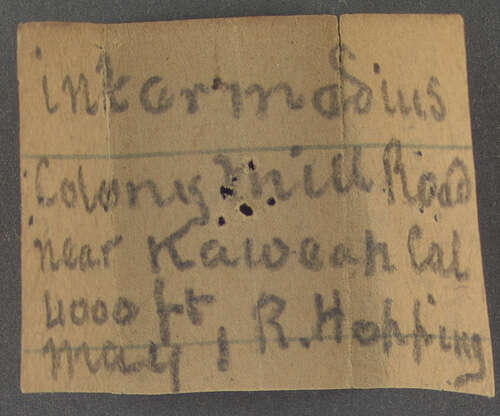 intermedius
Colony Mill Road
near Kaweah Cal
4000 ft
May 1 R. Hopping